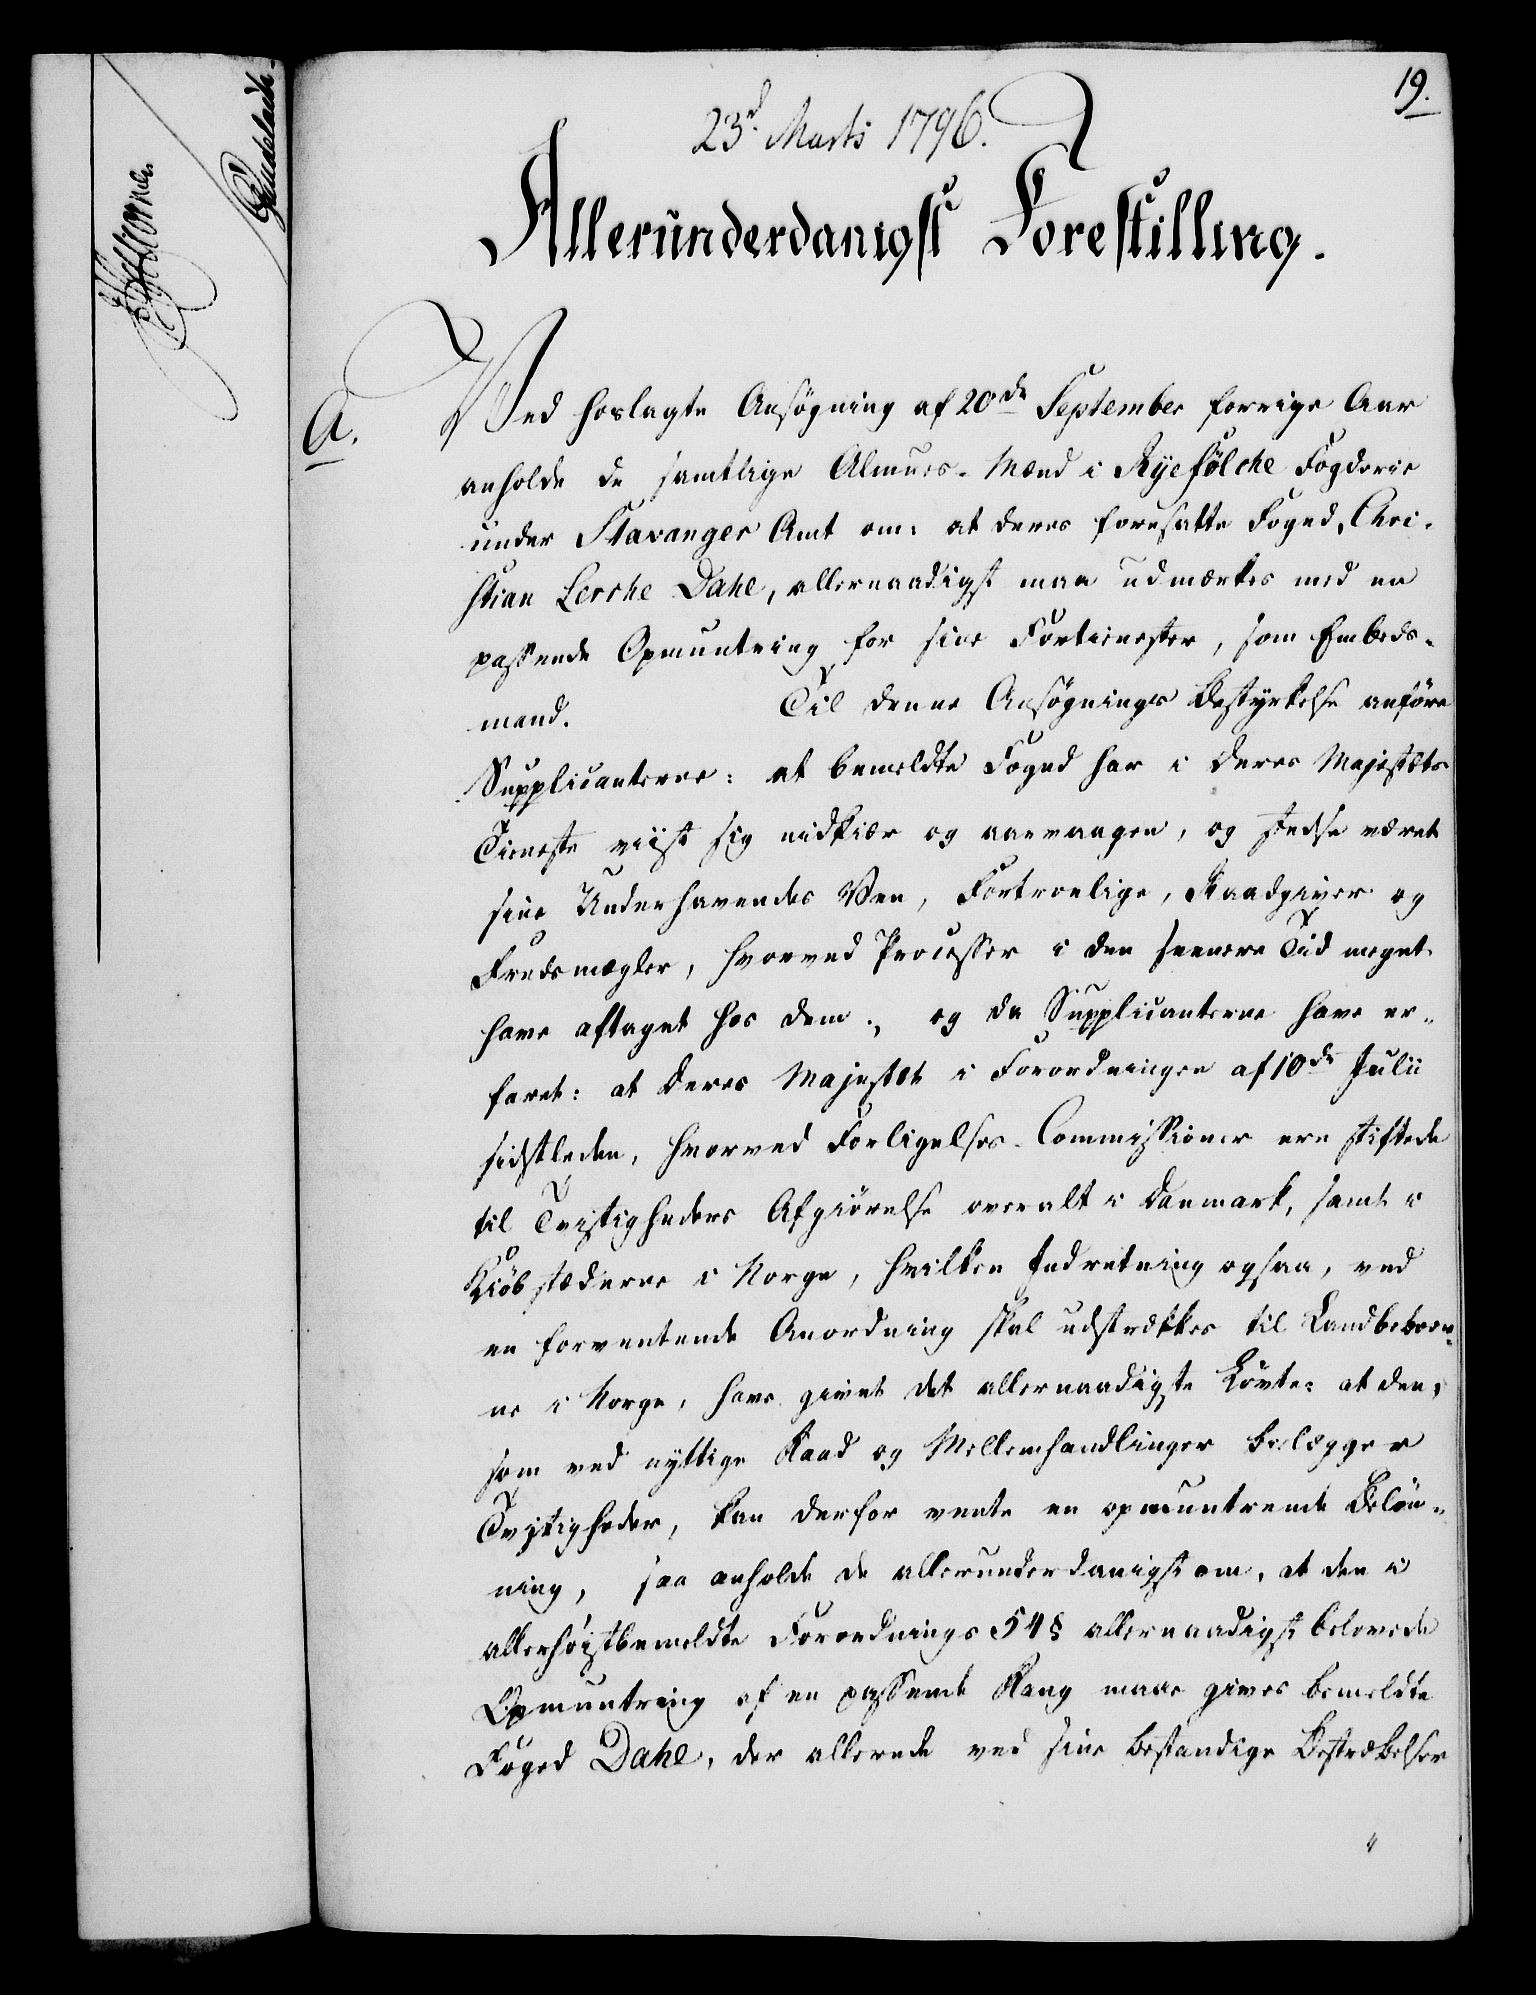 19.
23d Marts 1796.
Allerunderdanigst Forestilling.
A.
Ved hoslagte Ansøgning af 20de September forrige Aar
anholde de samtlige Almues-Mænd i Ryefølche Fogderie
under Stavanger Amt om: at deres foresatte Foged, Chri-
stian Lerche Dahl, allernaadigst maa udmærkes med en
passende Opmuntring for sine Fortienester, som Embeds-
mand. Til denne Ansøgnings Bestyrkelse anføre
Supplicanterne: at bemeldte Foged har i Deres Majestæts
Tieneste viist sig nidkiær og aarvaagen, og stedse været
sine Underhavendes Ven, Fortroelige, Raadgiver og
Fredsmægler, hvorved Processer i den seenere Tid meget
have aftaget hos dem; og da Supplicanterne have er-
faret: at Deres Majestæt i Forordningen af 10de Julii
sidstleden, hvorved Forligelses-Commissioner ere stiftede
til Tvistigheders Afgiørelse overalt i Danmark, samt i
Kiøbstæderne i Norge, hvilken Indretning ogsaa, ved
en forventende Anordning skal udstrækkes til Landbeboer-
ne i Norge, have givet det allernaadigste Løvte: at den,
som ved nyttige Raad og Mellemhandlinger bielægger
Tvistigheder, kan derfor vente en opmuntrende Beløn-
ning, saa anholde de allerunderdanigst om, at den i
allerhøistbemeldte Forordnings 54 § allernaadigst belovede
Opmuntring af en passende Rang maae gives bemeldte
Foged Dahl, der allerede ved sine bestandige Bestræbelser